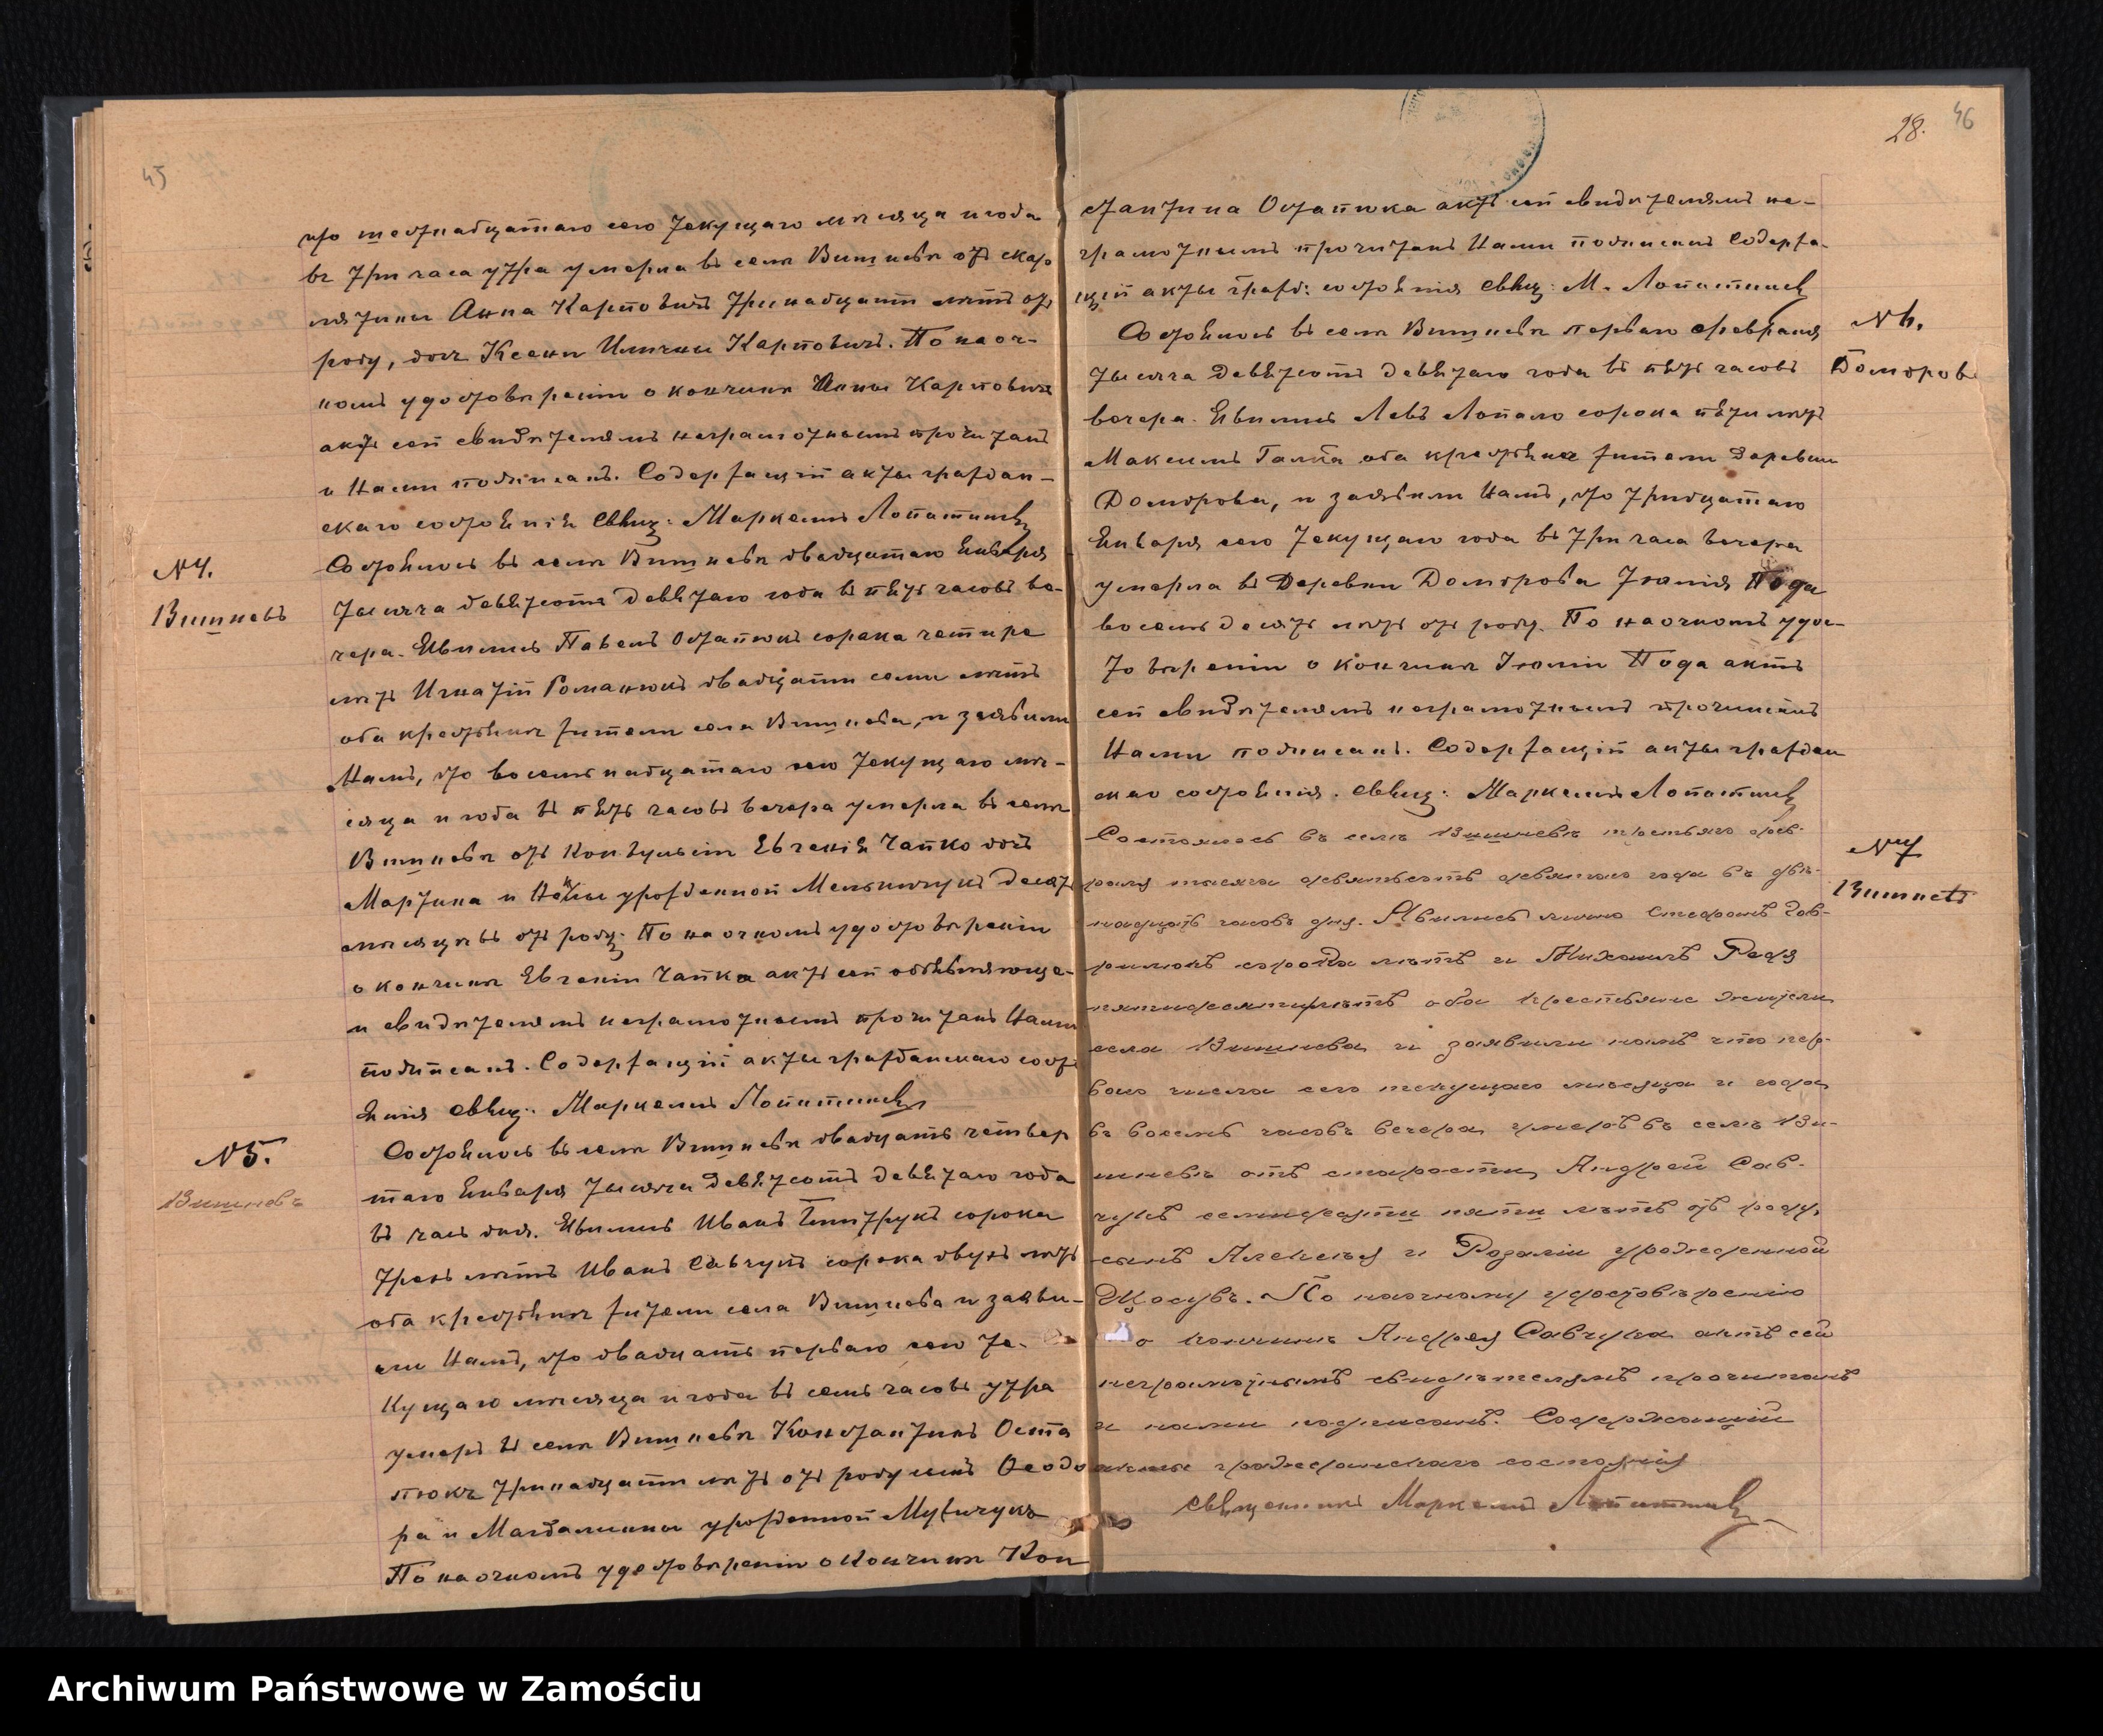 45
что шестнадцатаго сего текущаго мѣсяца и года
въ три часа утра умерла въ селѣ Вишневѣ отъ скар-
лятины Анна Карповичъ тринадцати лѣтъ отъ
роду, дочь Ксени Карповичъ. По наоч-
номъ удостовѣреніи о кончинѣ Анны Карповичъ
актъ сей свидѣтелямъ неграмотнымъ прочитанъ
и Нами подписанъ. Содержащій акты граждан-
скаго состоянія Свящ: Маркелъ
N 4.
Вишневъ
Состоялось въ селѣ Вишневѣ двадцатаго Января
тысяча девятсотъ девятаго года въ пять часовъ ве-
чера. Явились Павелъ Остапюкъ сорока четире
лѣтъ Игнатій Романюкъ двадцати семи лѣтъ
оба крестьяне жители села Вишнева, и заявили
Намъ, что восемнадцатаго сего текущаго мѣ-
сяца и года въ пять часовъ вечера умерла въ селѣ
Вишневѣ отъ Конвульсіи Евгенія Чапко дочь
Мартина и урожденной Мельничукъ десять
мѣсяцевъ отъ роду. По наочномъ удостовѣреніи
о кончинѣ Евгеніи Чапко актъ сей объявляюще-
и свидѣтелямъ неграмотнымъ прочитанъ Нами
подписанъ. Содержащій акты гражданскаго сост
янія Свящ: Маркелъ
N 5.
Вишневъ
Состоялось въ селѣ Вишневѣ двадцать четвер
таго Января тысяча девятсотъ девятаго года
въ часъ дня. Явились Иванъ сорока
трехъ лѣтъ Иванъ Савчукъ сорока двухъ лѣтъ
оба крестьяне жители села Вишнева и заяви-
ли Намъ, что двадцать перваго сего те-
кущаго мѣсяца и года въ семь часовъ утра
умеръ въ селѣ Вишневѣ Константинъ Оста
пюкъ тринадцати лѣтъ отъ роду сынъ Ѳеодо
ра и Магдалины урожденной
По наочномъ удостовѣреніи о Кончинѣ Кон
28. 46
стантина Остапюка актъ сей свидѣтелямъ не-
грамотнымъ прочитанъ Нами подписанъ Содержа-
щій акты гражд: состоянія Свящ: М.
N 6.
Домбров
Состоялось въ селѣ Вишневѣ перваго февраля
тысяча девятсотъ девятаго года въ пять часовъ
вечера. Явились Левъ Лопало сорока пяти лѣтъ
Максимъ Галка оба крестьяне жители деревни
Домброва, и заявили Намъ, что тридцатаго
Января сего текущаго года въ три часа вечера
умерла въ Деревни Домброва Юлія
восемьдесятъ лѣтъ отъ роду. По наочномъ удос-
товѣреніи о кончинѣ Юліи актъ
сей свидѣтелямъ неграмотнымъ прочитанъ
Нами подписанъ. Содержащій акты граждан
скаго состоянія. Свящ: Маркелъ
N 7
Вишневъ
Состоялось въ селѣ Вишневѣ третьяго фев-
раля тысяча девятьсотъ девятаго года въ двѣ-
надцать часовъ дня. Явились лично Стефанъ Гав-
рилюкъ сорока лѣтъ и Михаилъ
пятидесяти лѣтъ оба крестьяне жители
села Вишнева и заявили намъ что пер-
ваго числа сего текущаго мѣсяца и года
въ восемь часовъ вечера умеръ въ селѣ Ви-
шневѣ отъ старости Андрей Сав-
чукъ семидесяти пяти лѣтъ отъ роду,
сынъ Алексѣя и Розаліи урожденной
По наочному удостовѣренію
о кончинѣ Андрея Савчука актъ сей
неграмотнымъ свидѣтелямъ прочитанъ
и нами подписанъ. Содержащій
акты гражданскаго состоянія
Священникъ Маркелъ
Archiwum Państwowe w Zamościu